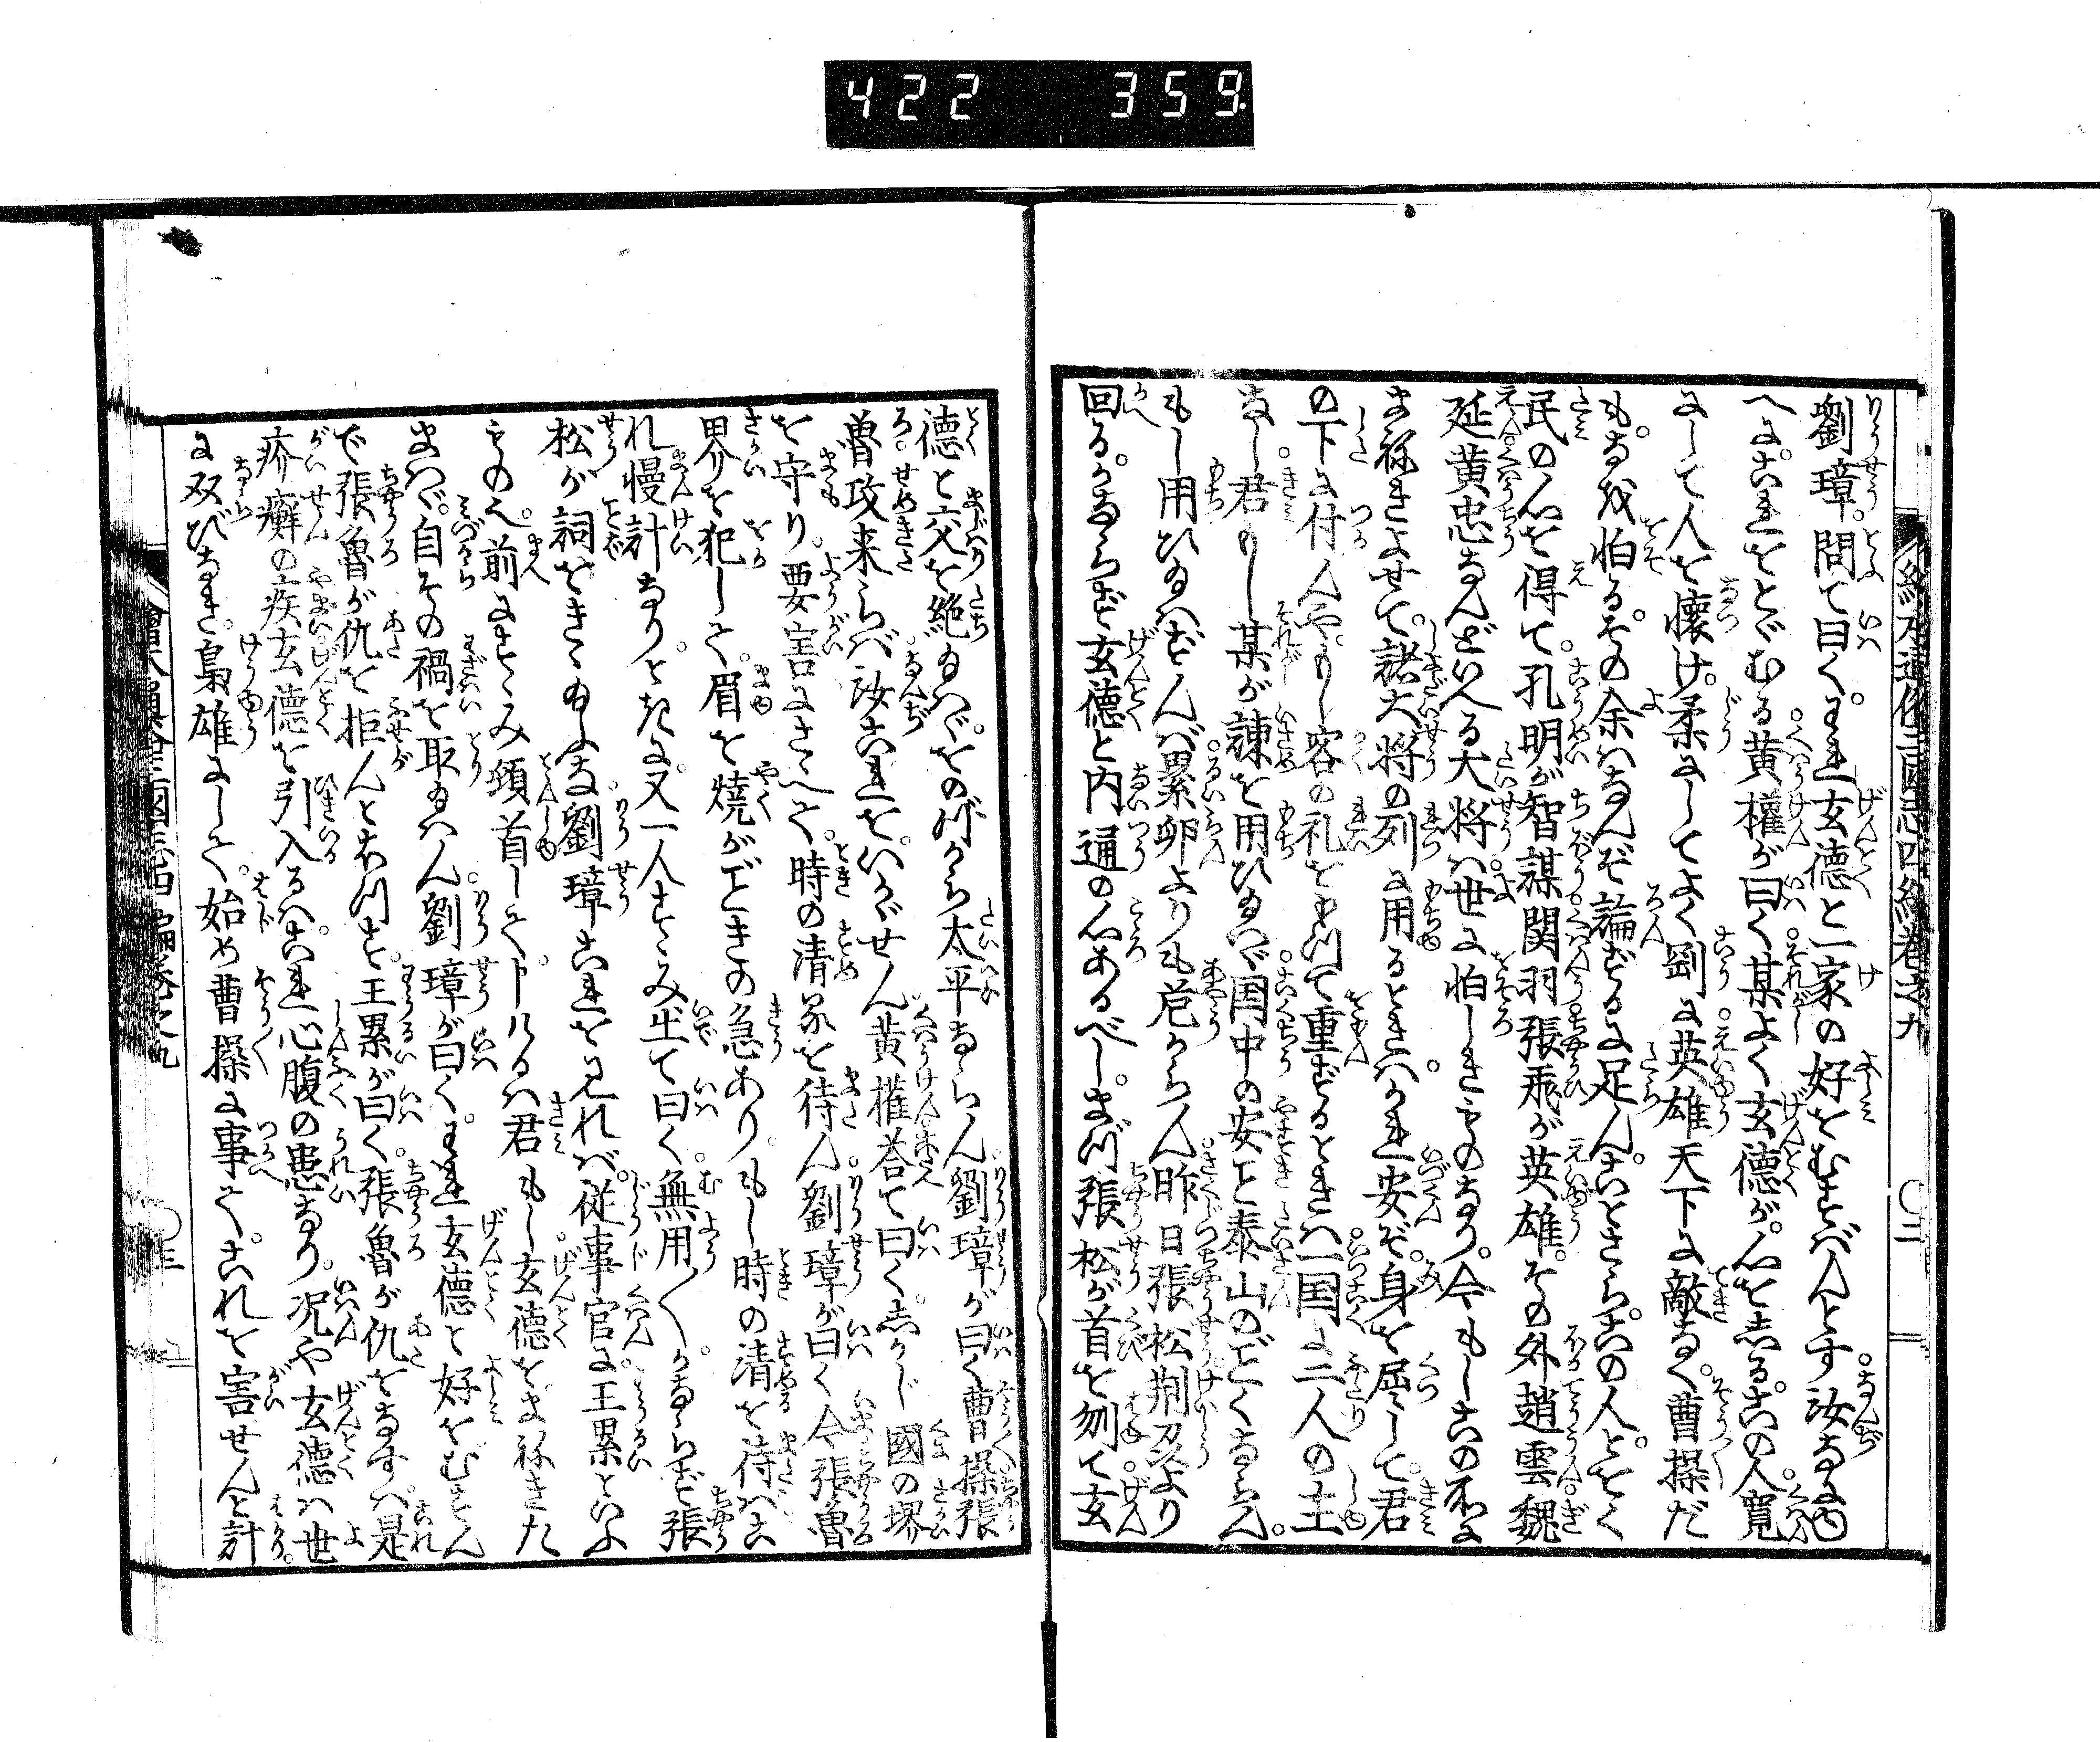 422 359
劉璋問て曰くわれ玄徳と一家の好をむすばんとす汝なにゆ
へにこれをとゞむる黄權が曰く某よく玄徳が心をしるこの人寛
にして人を懐け柔にしてよく剛に英雄天下に敵なく曹操だ
もなを怕るその余はなんぞ論ずるに足んこいとさらこの人とをく
民の心を得て孔明が智謀関羽張飛が英雄その外趙雲魏
延黄忠なんどいへる大将は世に怕しきものなり今もしこの国に
まねきよせて諸大将の列に用るときはかれ安ぞ身を屈して君
の下に付んやもし客の礼をもつて重ずるときは一国に二人の主
なし君もし某が諫を用ひ給はゞ国中の安こと泰山のごとくならん
もし用ひ給はずんば累卵よりも危からん昨日張松荆州より
回るかならず玄徳と内通の心あるべしまづ張松が首を刎て玄
徳と交を絶給へばそのゝち太平ならん劉璋が曰く曹操張
魯攻来らば汝これをいかゞせん黄權答て曰くしかじ國の堺
を守り要害にさゝへて時の清るを待ん劉璋が曰く今張魯
界を犯して眉を焼がごときの急ありもし時の清を待はこ
れ慢計なりときに又一人すゝみ出て曰く無用〱かならず張
松が詞をきゝ給ふな劉璋これを見れば従事官に王累といふ
ものへ前にすゝみ頭首して申けるは君もし玄徳をまねきた
まはゞ自その禍を取給はん劉璋が曰くわれ玄徳と好をむすん
で張魯が仇を拒んとおもつと王累が曰く張魯が仇をなすは是
疥癬の疾玄徳を引入るはこれ心腹の患なり况や玄徳は世
に双びなき梟雄にして始め曹操に事てこれを害せんと計
〇二
〇三